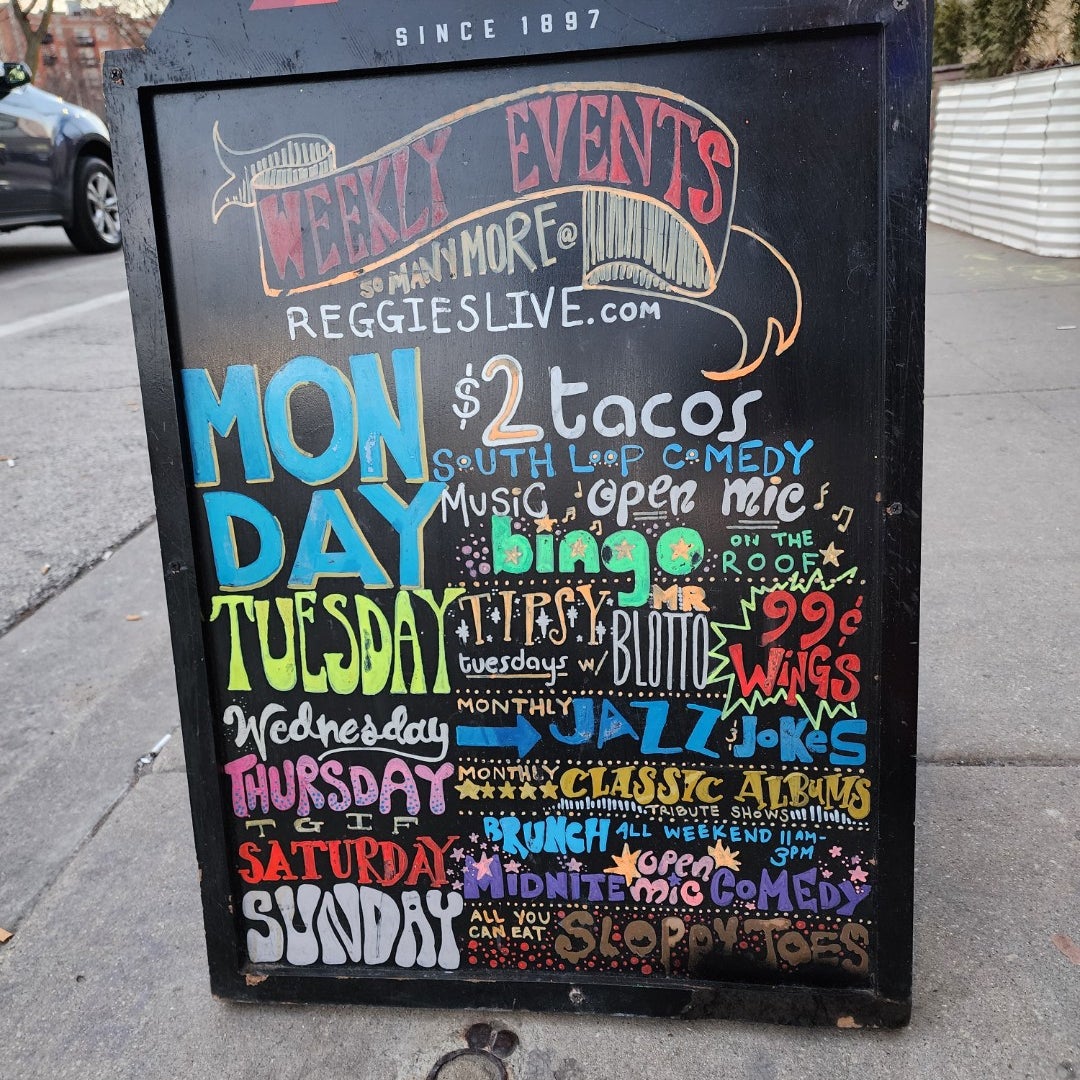 SINCE 1897
WEEKLY EVENTS
SO MANY MORE @
REGGIESLIVE.COM
MONDAY
$2 tacos
SOUTH LOOP COMEDY
MUSIC open mic
bingo ON THE ROOF
TUESDAY
TIPSY tuesdays w/ MR BLOTTO
99¢ WINGS
Wednesday
MONTHLY JAZZ & JOKES
THURSDAY
MONTHLY CLASSIC ALBUMS
TRIBUTE SHOWS
TGIF
BRUNCH ALL WEEKEND 11AM-3PM
SATURDAY
MIDNITE OPEN MIC COMEDY
SUNDAY
ALL YOU CAN EAT SLOPPY TOES